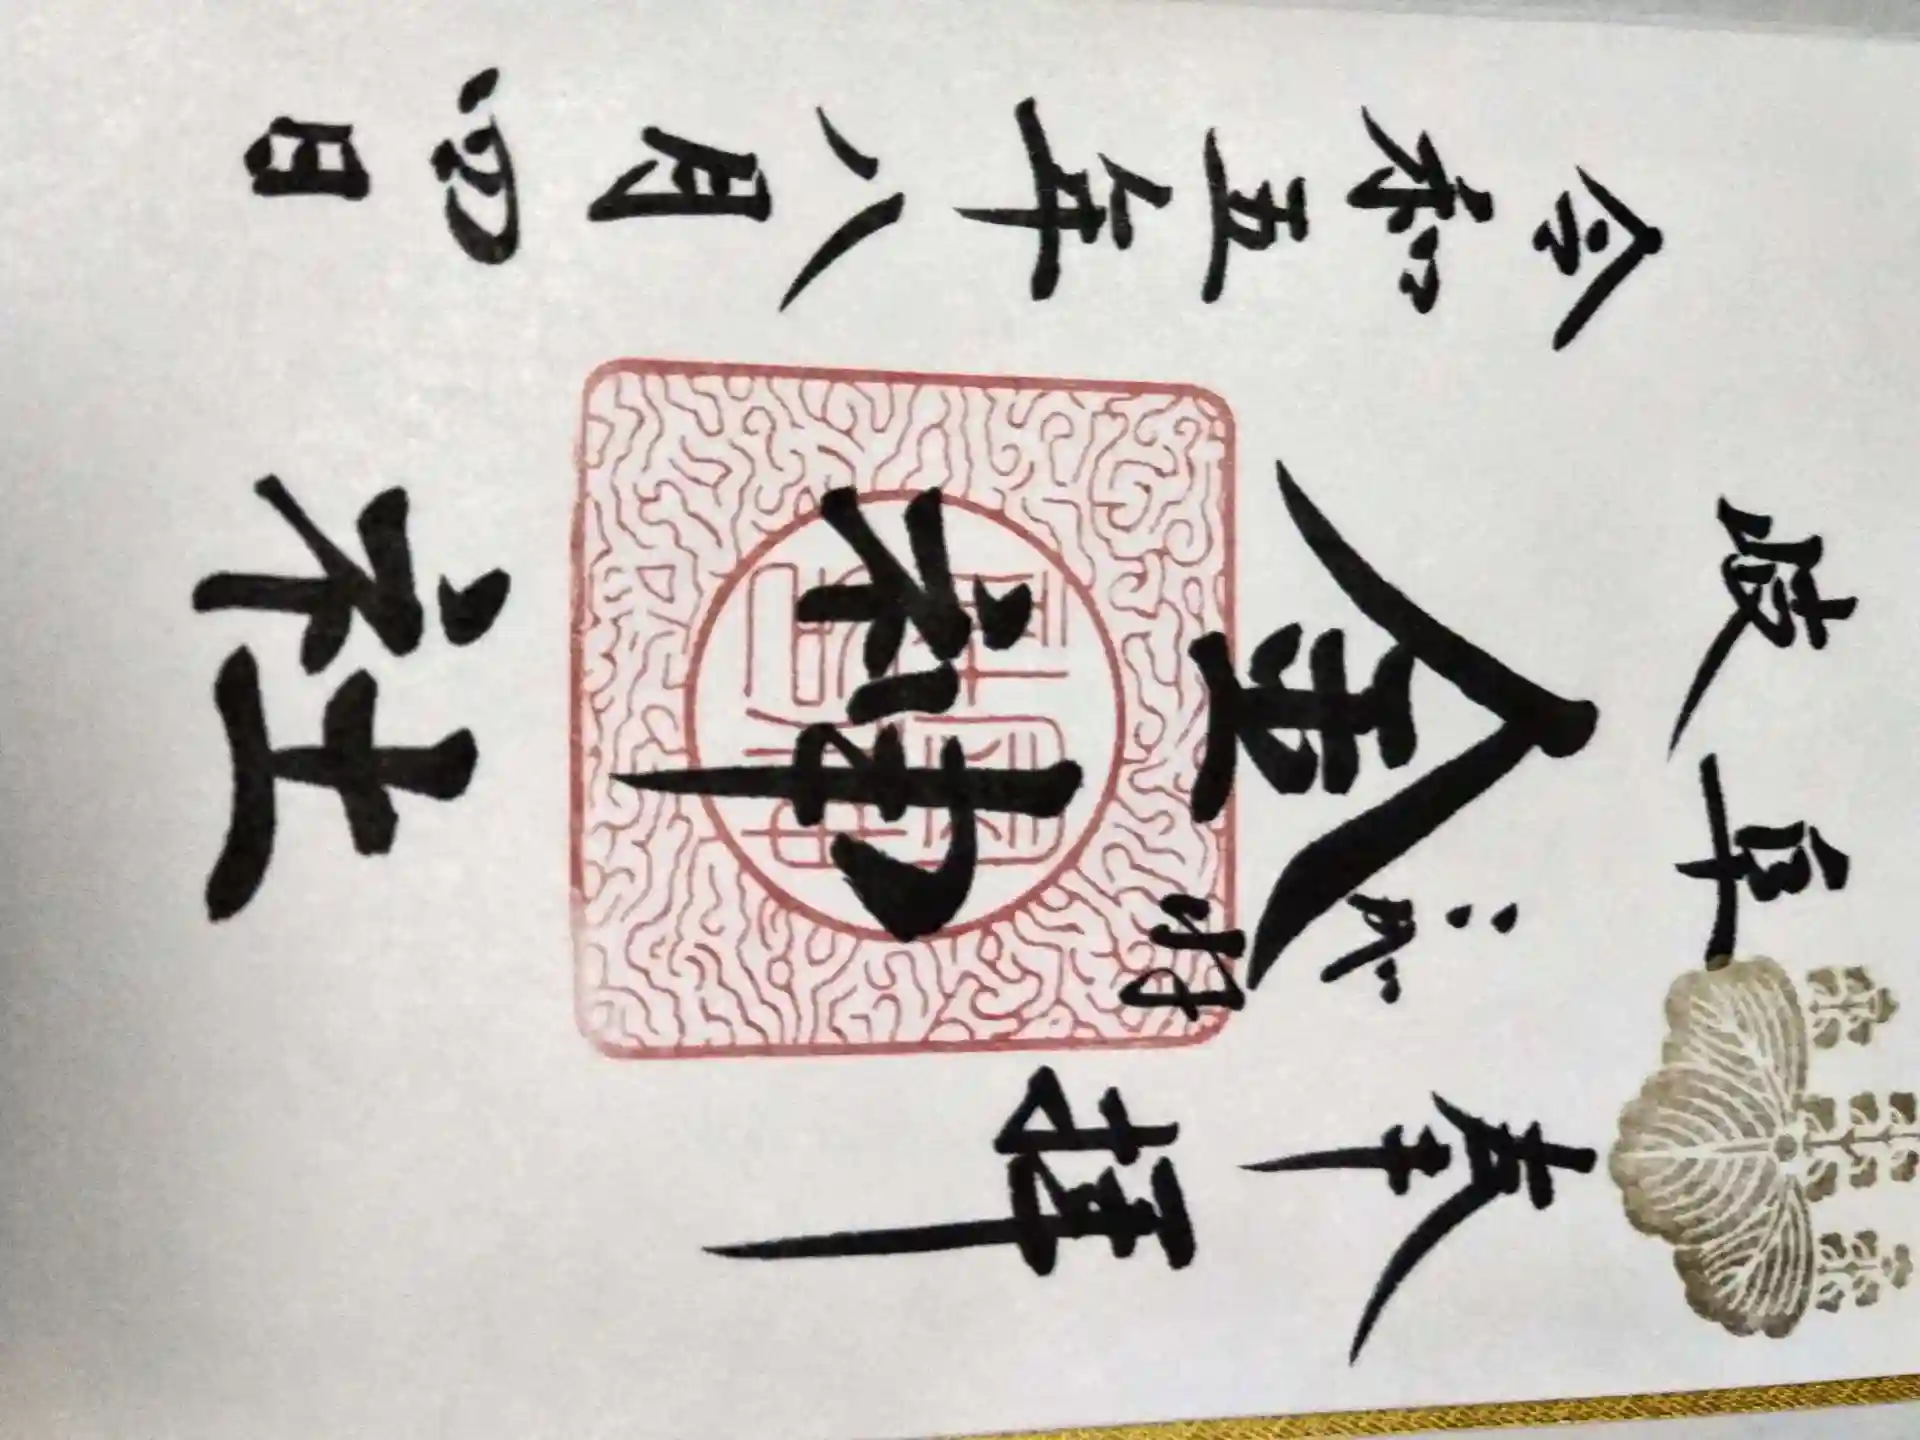 奉拝
岐阜
こがね
金神社
令和五年八月四日